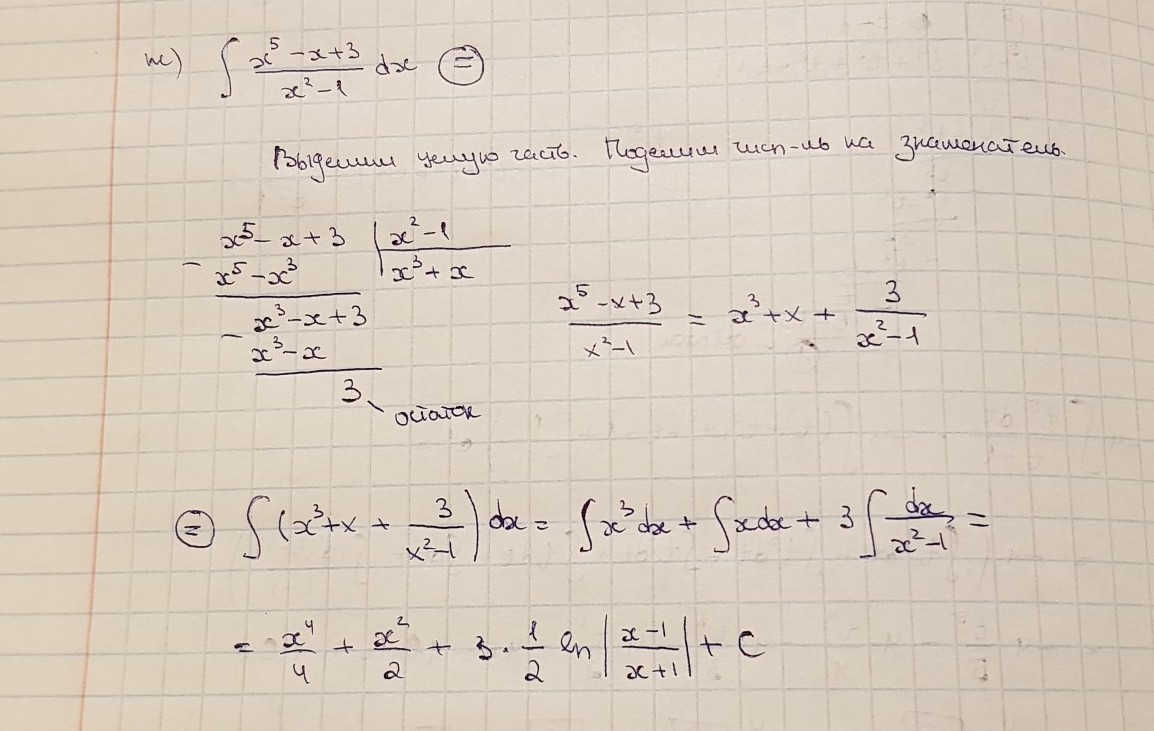 ж) ∫ (x⁵ - x + 3)/(x² - 1) dx ⊜
Выделим целую часть. Поделим числ-ль на знаменатель.
x⁵ - x + 3 | x² - 1
- x⁵ - x³ | x³ + x
x³ - x + 3
- x³ - x
3 остаток
(x⁵ - x + 3)/(x² - 1) = x³ + x + 3/(x² - 1)
⊜ ∫ (x³ + x + 3/(x² - 1)) dx = ∫ x³ dx + ∫ x dx + 3 ∫ dx/(x² - 1) =
= x⁴/4 + x²/2 + 3 · 1/2 ln |(x - 1)/(x + 1)| + C